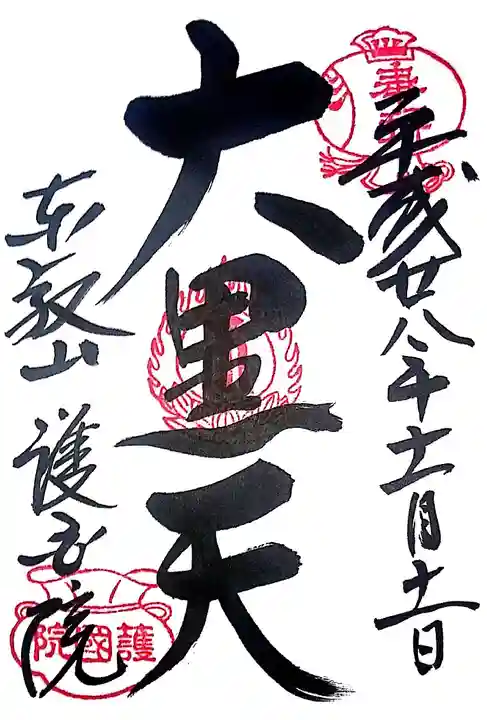 平成廿八年十一月十一日
大黒天
東叡山 護国院
護國院